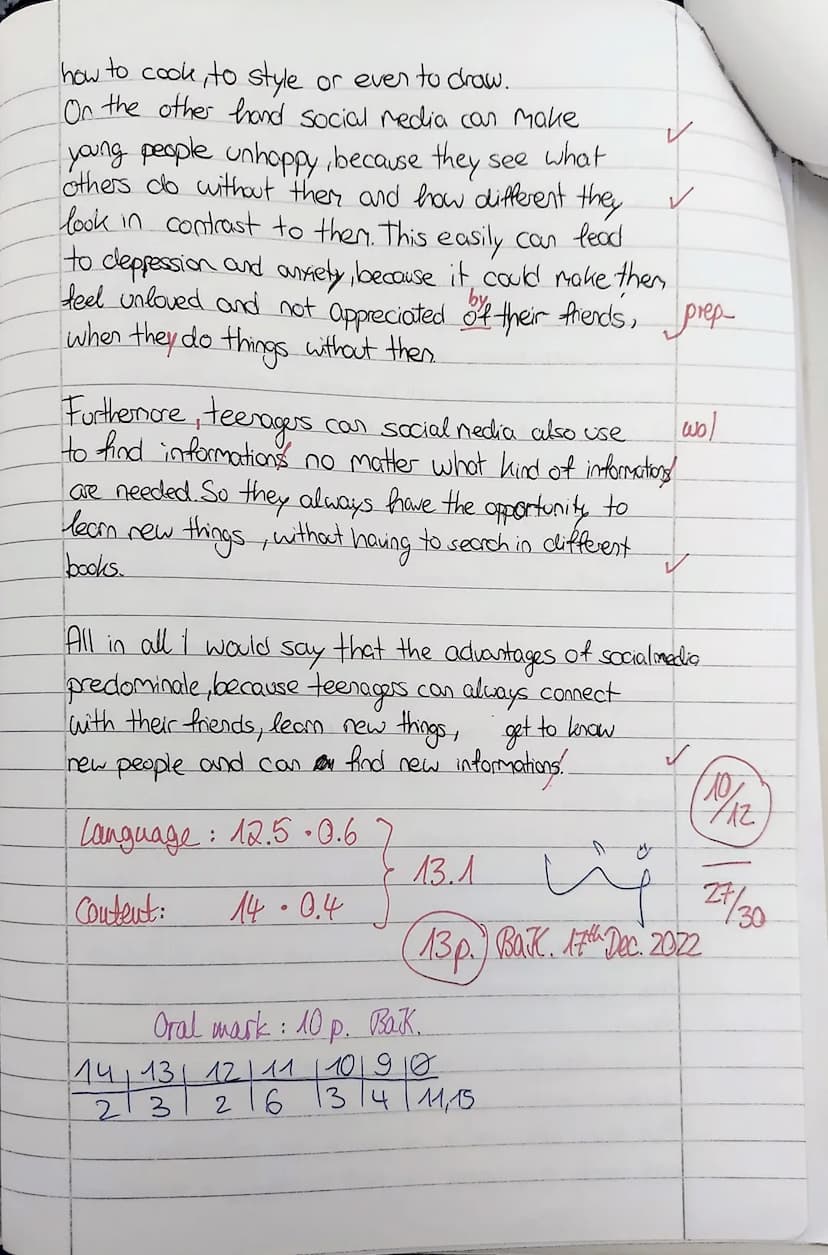 how to cook, to style or even to draw.
On the other hand social media can make
young people unhappy, because they see what
others do without them and how different they
look in contrast to them. This easily can lead
to deppression and anxiety, because it could make them
by
feel unloved and not appreciated of their friends, prep
when they do things without them
Furthermore, teenagers can social media also use wo
to find informations no matter what kind of informations
are needed. So they always have the opportunity to
learn new things, without having to search in different
books.
All in all I would say that the advantages of social media
predominate, because teenagers can always connect
with their friends, learn new things, get to know
new people and can find new informations.
10/12
Language: 12.5 · 0.6
13.1
27/30
Content: 14 · 0.4
13p. BaK. 17th Dec. 2022
Oral mark: 10 p. BaK.
14 13 12 11 10 9 Ø
2 3 2 6 3 4 11,15